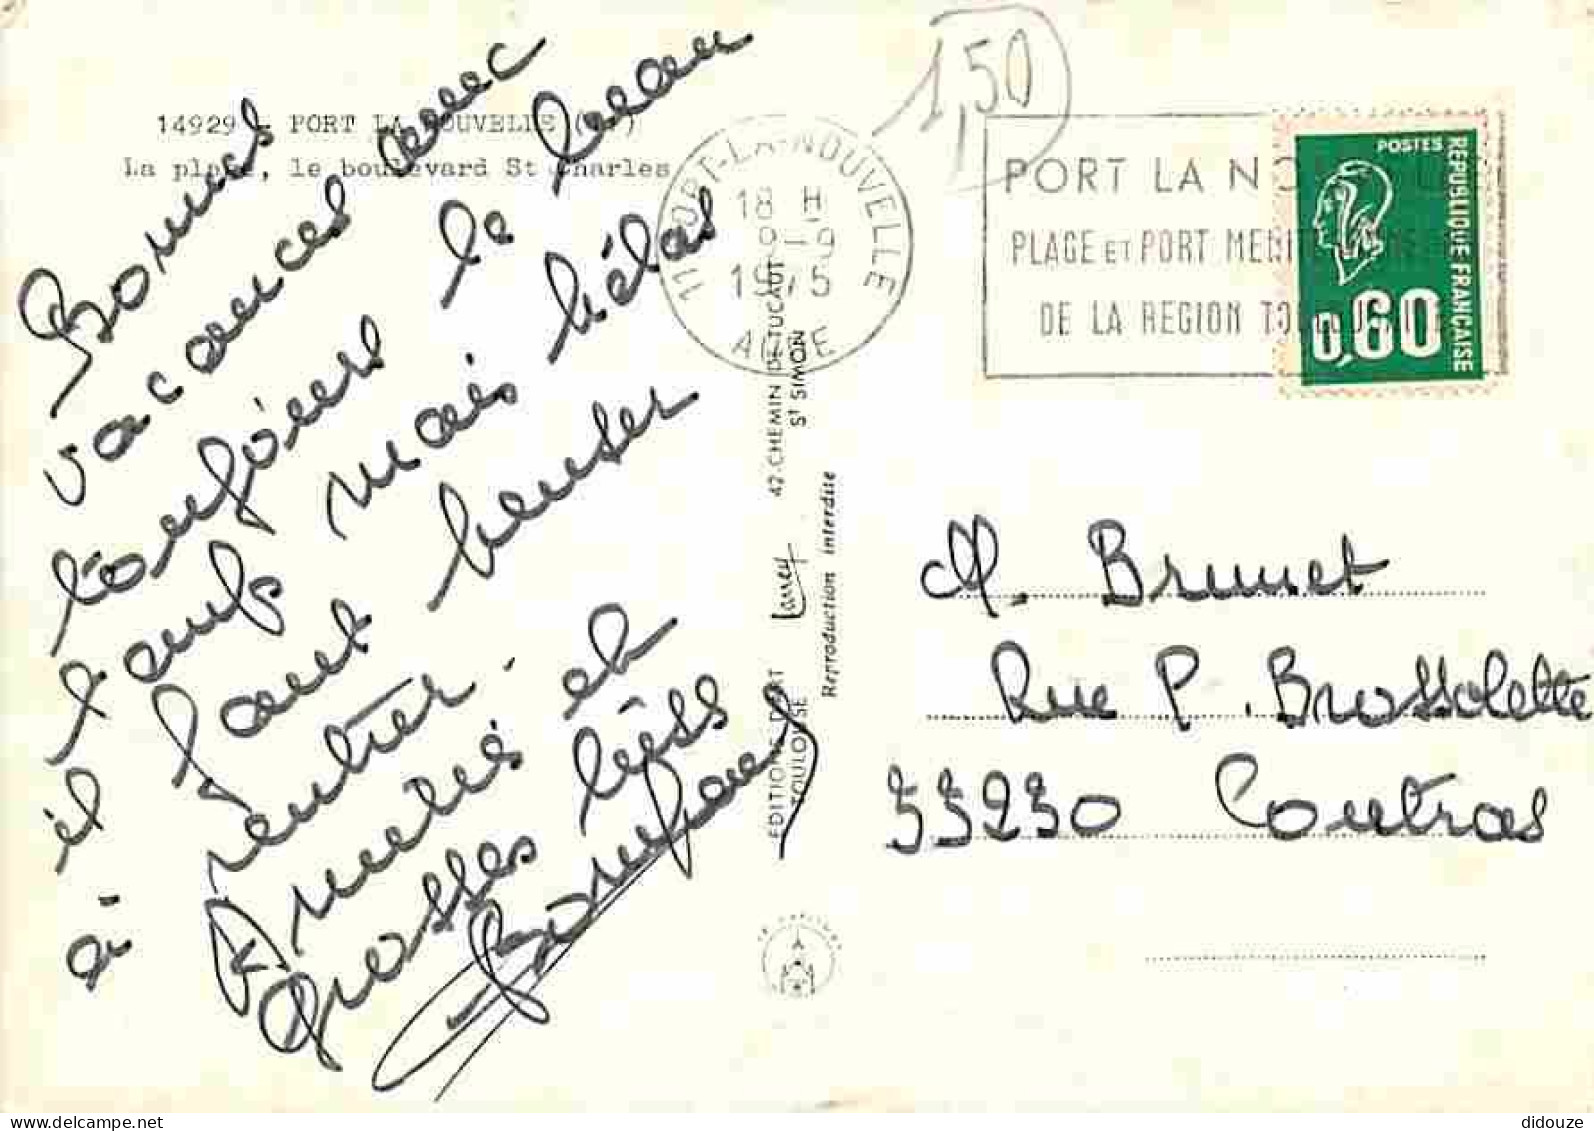 14929 - PORT LA NOUVELLE
La plage, le boulevard St Charles
Bonnes
vacances avec
toujours le beau
temps mais hélas
il faut penser
à rentrer.
Amitié et
grosses bises
1,50
11 PORT-LA-NOUVELLE
18 H
1975
AUDE
PORT LA NOUVELLE
PLAGE ET PORT MEDITERRANEEN
DE LA REGION TOULOUSAINE
POSTES
REPUBLIQUE FRANÇAISE
0,60
EDITIONS D'ART Larrey 42, CHEMIN DE TUCAUT
TOULOUSE St SIMON
Reproduction interdite
M. Brunet
Rue P. Brossolette
33230 Coutras
didouze